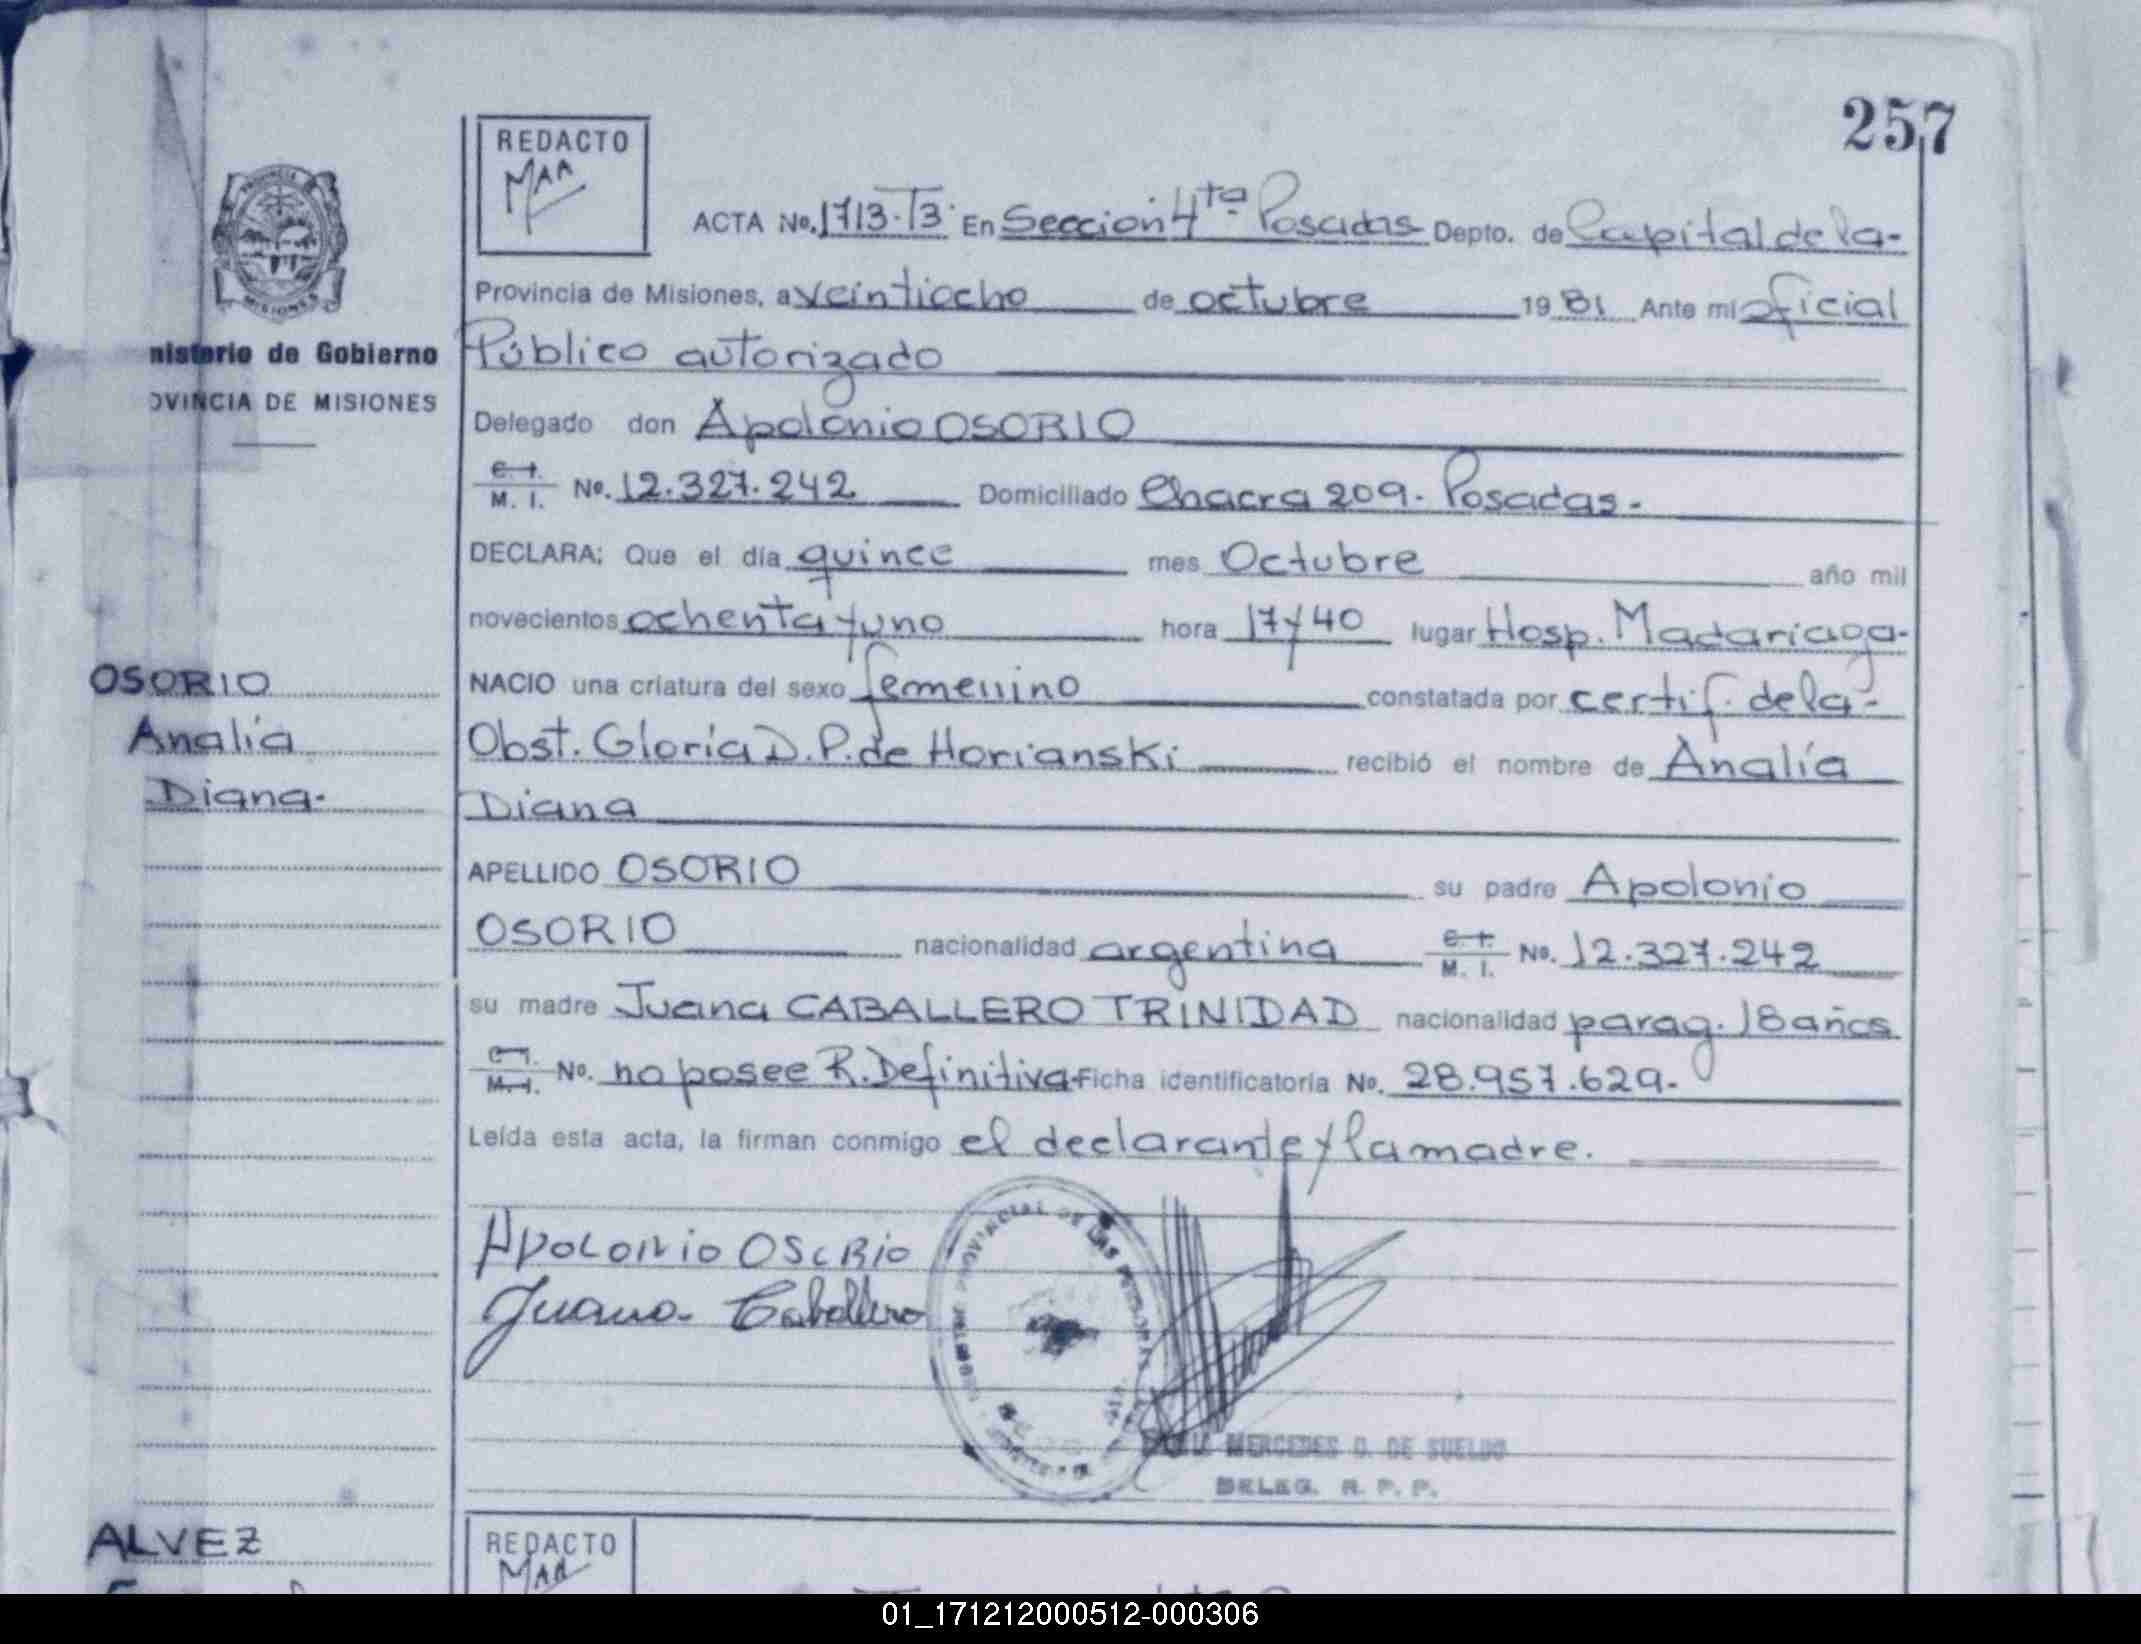 257
REDACTO
MAA
ACTA No. 1713-T3· En Sección 4ta Posadas Depto. de Capital de la-
Provincia de Misiones, a veintiocho de octubre 1981 Ante mi oficial
nisterio de Gobierno
Público autorizado
OVINCIA DE MISIONES
Delegado don Apolonio OSORIO
C. I. M. I. No. 12.327.242 Domiciliado Chacra 209. Posadas.-
DECLARA: Que el día quince mes Octubre año mil
novecientos ochenta y uno hora 17y40 lugar Hosp. Madariaga-
OSORIO
NACIO una criatura del sexo femenino constatada por certif. de la-
Analía
Obst. Gloria D. P. de Horianski recibió el nombre de Analía
Diana.
Diana
APELLIDO OSORIO su padre Apolonio
OSORIO nacionalidad argentina C. I. M. I. No. 12.327.242
su madre Juana CABALLERO TRINIDAD nacionalidad parag. 18 años
C. I. M. I. No. no posee R. Definitiva Ficha identificatoria No. 28.957.629.-
Leída esta acta, la firman conmigo el declarante y la madre.
Apolonio OSORIO
Juana Caballero
PROVINCIAL DE LAS
MERCEDES D. DE SUELDO
DELEG. R. P. P.
ALVEZ
REDACTO
MAA
01_171212000512-000306